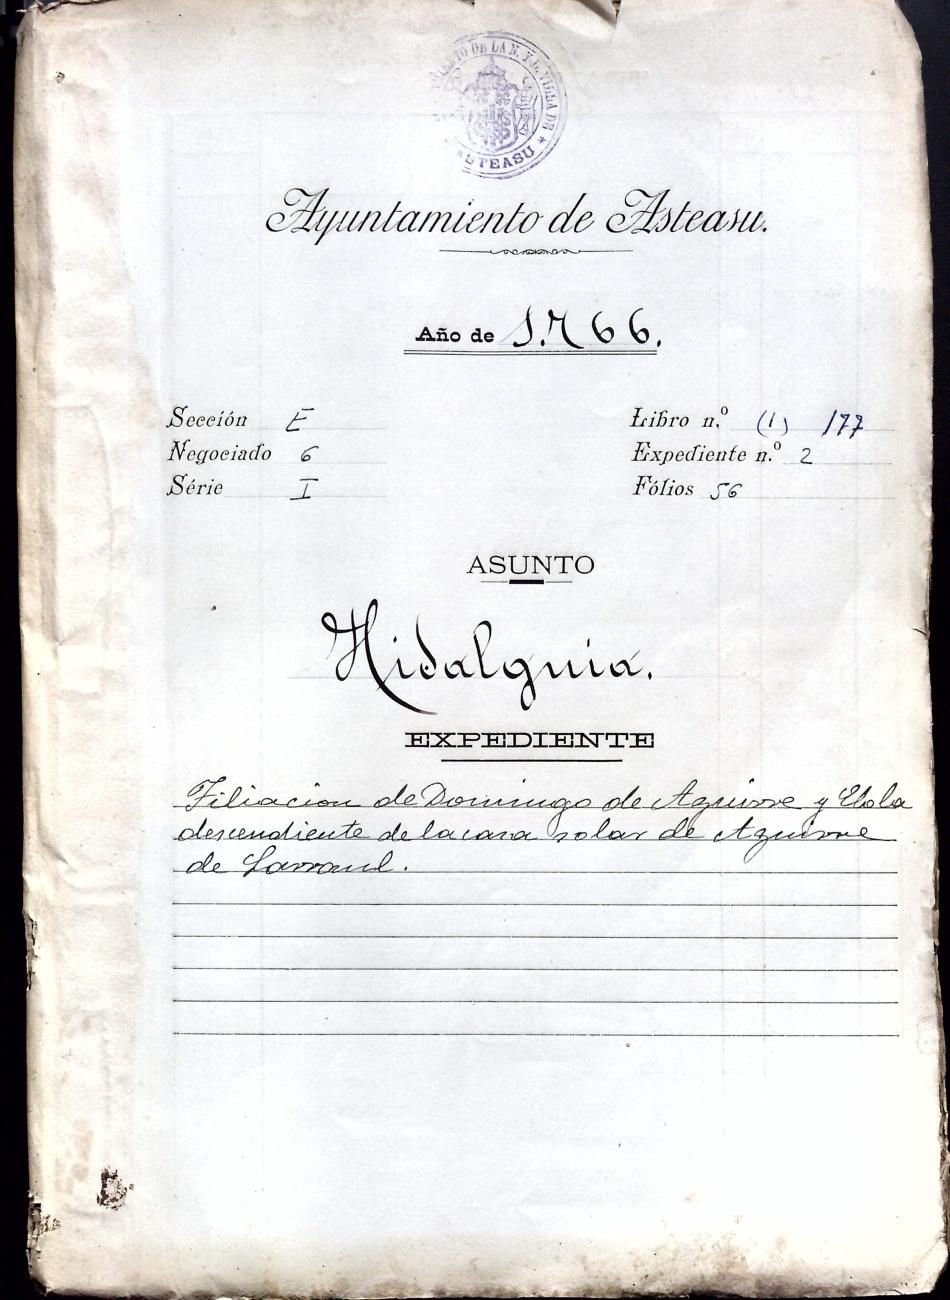 AYUNTAMIENTO DE LA N. Y L. VILLA DE
ASTEASU
Ayuntamiento de Asteasu.
Año de 1.766.
Sección E
Negociado 6
Série I
Libro n.º (1) 177
Expediente n.º 2
Fólios 56
ASUNTO
Hidalguia.
EXPEDIENTE
Filiacion de Domingo de Aguirre y Elola
descendiente de la casa solar de Aguirre
de Larraul.